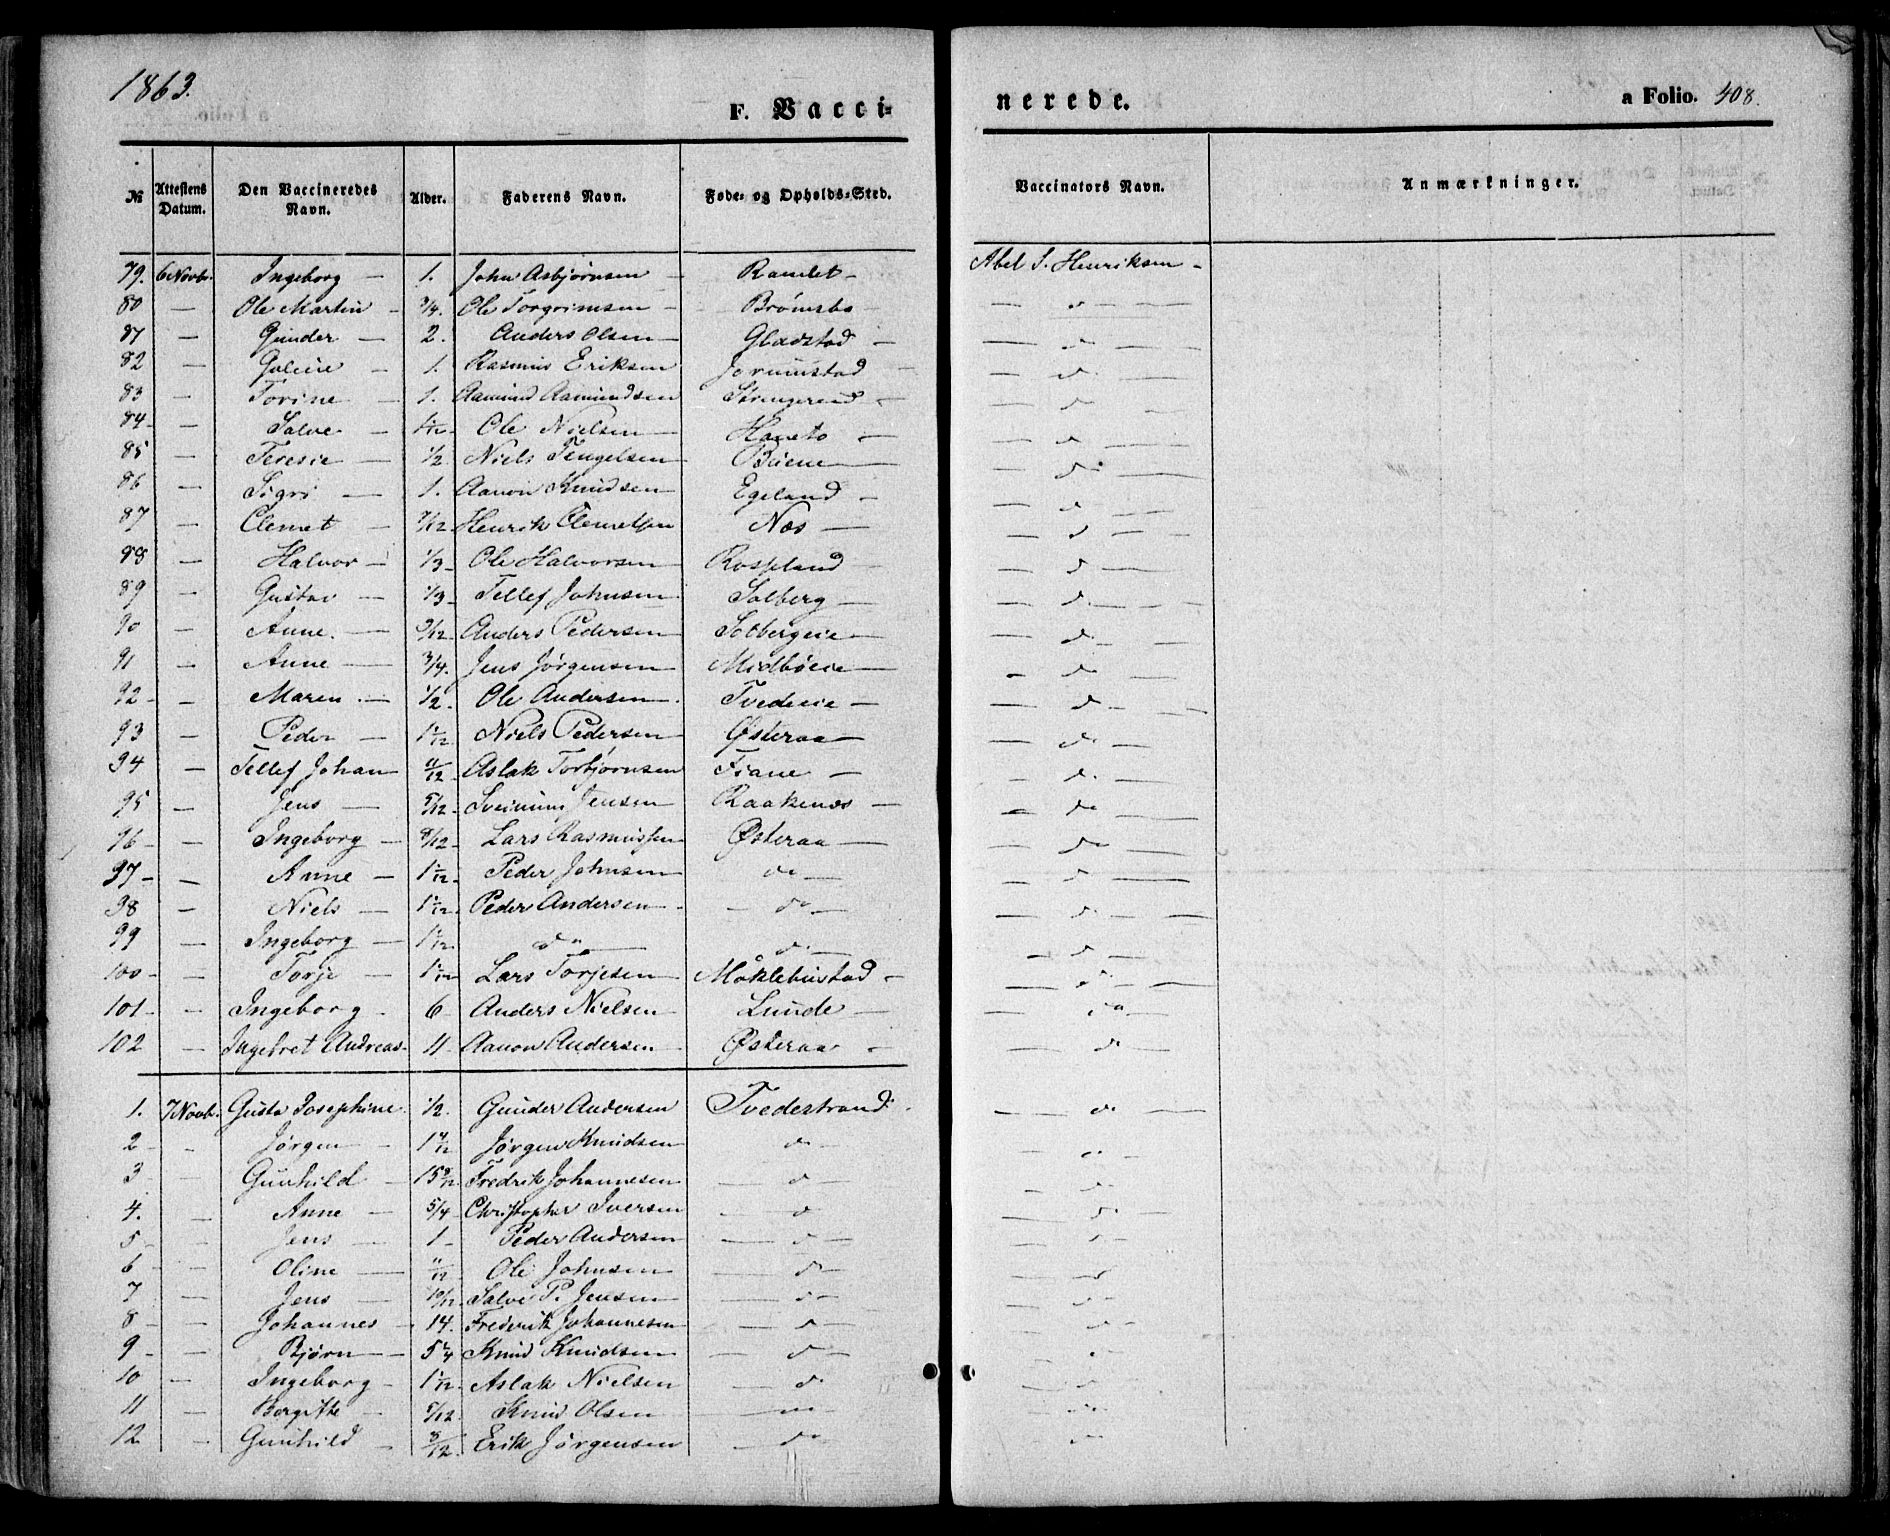 1863.
F. Vacci-
nerede.
a Folio. 408.
№ Attestens Datum. Den Vaccineredes Navn. Alder. Faderens Navn. Føde- og Opholds-Sted. Vaccinators Navn. Anmærkninger.
79. 6 Novb. Ingeborg — 1. John Asbjørnsen — Ramlet — Abel S. Henriksen —
80 — Ole Martin — 3/4. Ole Torgrimsen — Brømsbo — — d —
81 — Gunder — 2. Anders Olsen — Gladstad — — d —
82 — — 1. Rasmus Eriksen Jormunstad — — d —
83 — Torine — 1. Aamund Aamundsen — — d —
84 — Salve — Ole Nielsen — — — d —
85 — Teresie — 1/2. Niels Tengelsen — — — d —
86 — Sigri — 1. Aanon Knudsen — Egeland — — d —
87 — Clemet — 7/12 Henrik Clemetsen Næs — — d —
88 — Halvor — 1/3 — Ole Halvorsen — Rossland — — d —
89 — Gustav — 1/3 — Tellef Johnsen Solberg — — d —
90 — Anne. — 9/12 Anders Pedersen — Solbergeie — — d —
91 — Anne — 3/4. Jens Jørgensen — Midbøeie — — d —
92 — Maren — 1/2 Ole Andersen — Tvedeeie — — d —
93 — Peder — 1 1/12 Niels Pedersen — Østeraa — — d —
94 — Tellef Johan — 11/12 Aslak Torbjørnsen Fiane — — d —
95 — Jens — 5/12 Sveinung Jensen — Raakenæs — — d —
96 — Ingeborg — 8/12 Lars Rasmussen Østeraa — — d —
97 — Anne — 1 1/12 Peder Johnsen — do — — d —
98 — Niels — 1 1/12 Peder Andersen — — do — — d —
99 — Ingeborg — 1 1/12 do — — d — — d —
100 — Torje — 1 1/12 Lars Torjesen — Møklebustad — — d —
101 — Ingeborg — 6 Anders Nielsen — Lunde — — do —
102 — Ingebret Andreas — 11 Aanon Andersen — Østeraa — — d —
1. 7 Novb. Gusta Josephine 1/2. Gunder Andersen Tvedestrand — do —
2 — Jørgen — Jørgen Knudsen — d — — d —
3 — Gunhild — Fredrik Johannesen — d — — d —
4. — Anne — 5/4 Christopher Iversen — d — — d —
5 — Jens — 1 — Peder Andersen — d — — d —
6 — Oline — 11/12 Ole Johnsen — — d — — d —
7 — Jens — 10/12 Salve P. Jensen — — d — — d —
8 — Johannes — 14. Frederik Johannesen — d — — d —
9 — Bjørn — Knud Knudsen — — d — — d —
10 — Ingeborg — 1 1/12 Aslak Nielsen — d — — d —
11 — Borgitte — Knud Olsen — — do — — d —
12 — Gunhild — 8/12. Erik Jørgensen — do — — d —